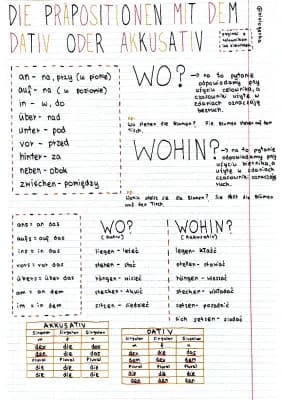 DIE PRÄPOSITIONEN MIT DEM
DATIV ODER AKKUSATIV
an - na, przy (w pionie)
auf - na (w poziomie)
in - w, do
über - nad
unter - pod
vor - przed
hinter - za
neben - obok
zwischen - pomiędzy
WO?
→ na to pytanie
odpowiadamy przy
użyciu celownika, a
czasowniki użyte w
zdaniach oznaczają
bezruch.
Wo stehen die Blumen? Die Blumen stehen auf dem
Tisch.
WOHIN?
→ na to pytanie
odpowiadamy przy
użyciu biernika, a
czasowniki użyte w
zdaniach oznaczają
ruch.
Wohin stellt sie die Blumen? Sie stellt die Blumen
auf den Tisch.
ans = an das
aufs = auf das
ins = in das
vors = vor das
übers = über das
am = an dem
im = in dem
WO?
(Dativ)
liegen - leżeć
stehen - stać
hängen - wisieć
stecken - tkwić
sitzen - siedzieć
WOHIN?
(Akkusativ)
legen - kłaść
stellen - stawiać
hängen - wieszać
stecken - wkładać
setzen - posadzić
sich setzen - siadać
AKKUSATIV
Singular Singular Singular
m f n
den die das
Plural Plural Plural
die die die
DATIV
Singular Singular Singular
m f n
Plural Plural Plural